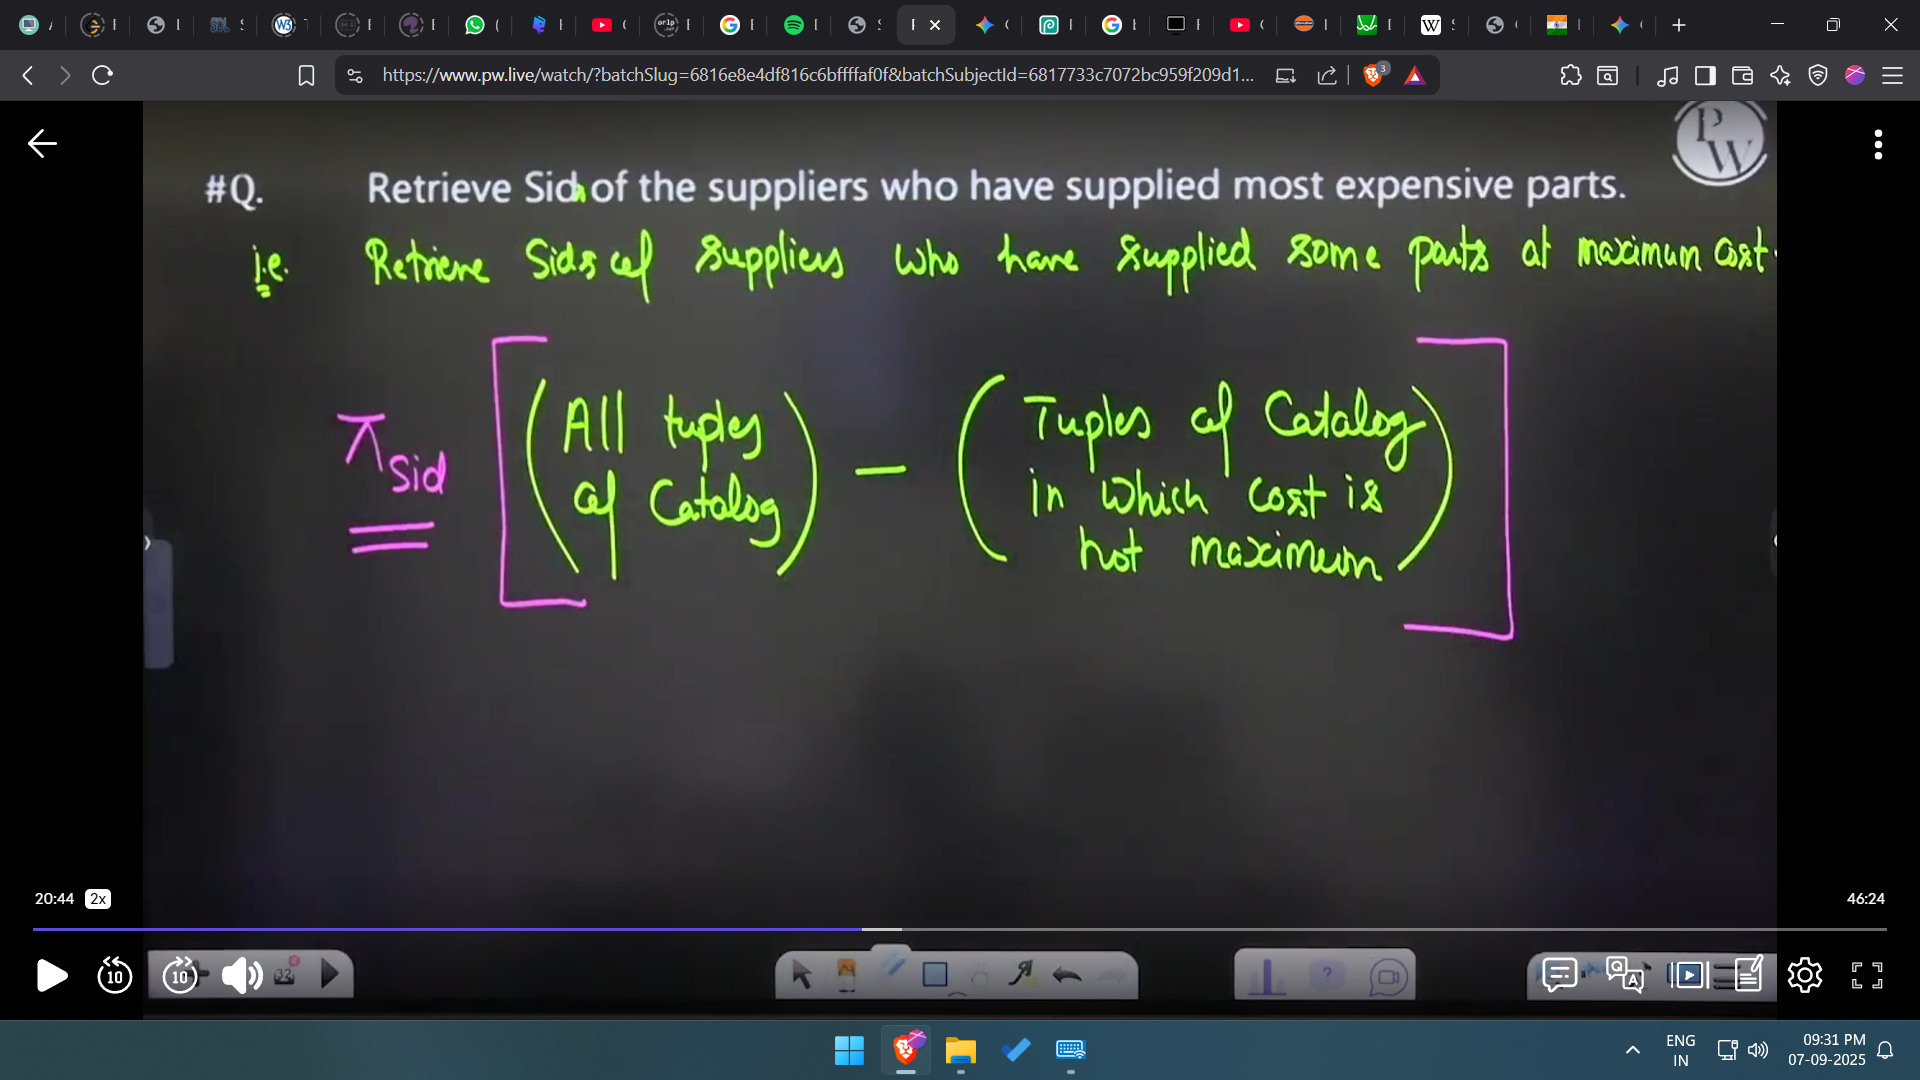 https://www.pw.live/watch/?batchSlug=6816e8e4df816c6bffffaf0f&batchSubjectId=6817733c7072bc959f209d1...
3
PW
#Q. Retrieve Sids of the suppliers who have supplied most expensive parts.
i.e. Retrieve Sids of suppliers who have supplied some parts at maximum cost.
π sid [ ( All tuples of Catalog ) - ( Tuples of Catalog in which cost is not maximum ) ]
20:44 2x
46:24
10
10
32
ENG
IN
09:31 PM
07-09-2025